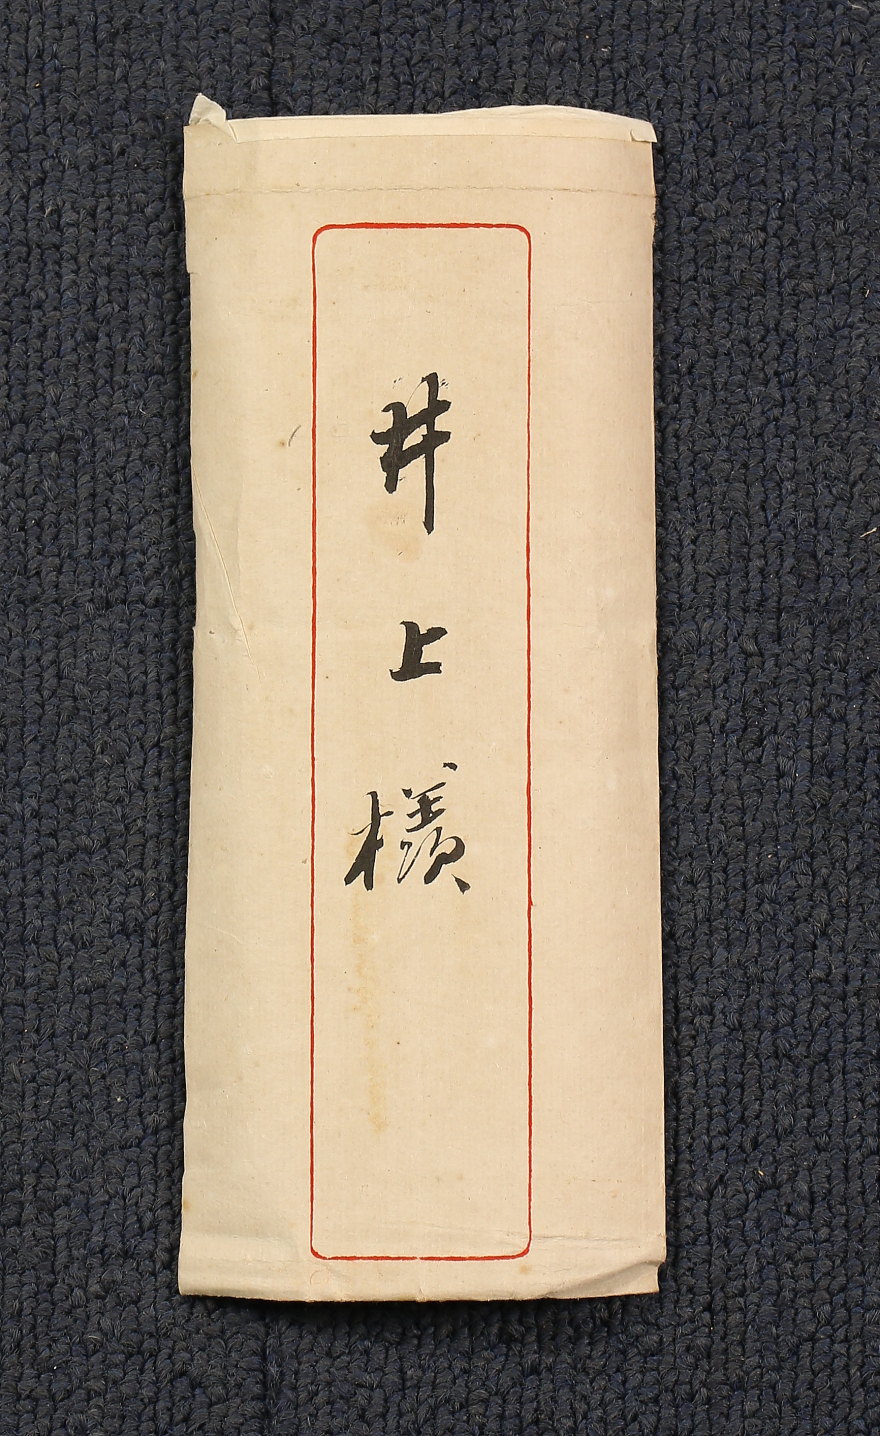 井上様